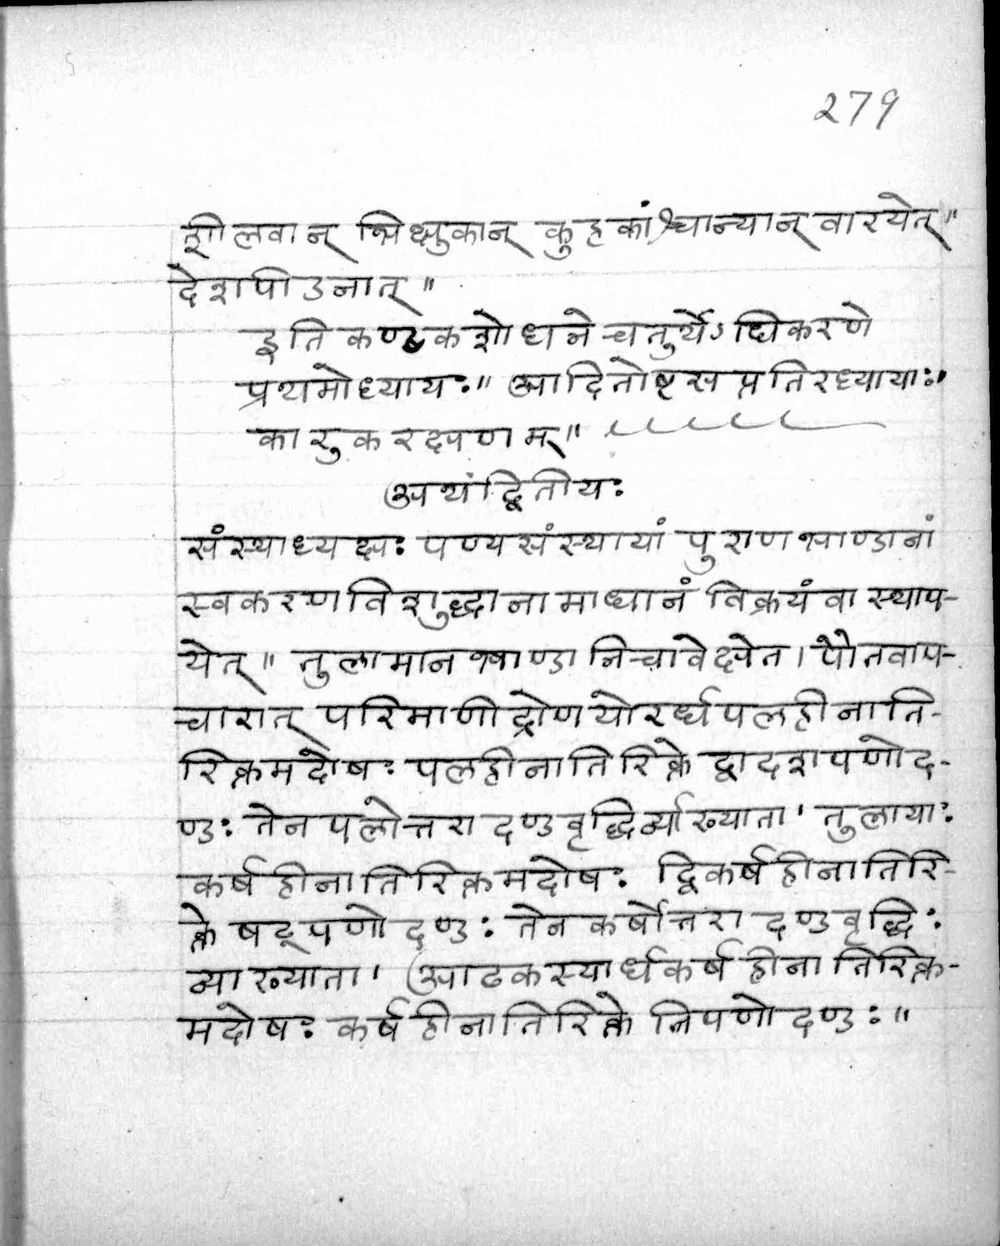 279
शीलवान् भिक्षुकान् कुहकांश्चान्यान् वारयेत्॥
देशपीडनात्॥
इति कण्टकशोधने चतुर्थेऽधिकरणे
प्रथमोध्यायः॥ आदितोष्टसप्ततिरध्यायाः॥
कारुकरक्षणम्॥
अथ द्वितीयः
संस्थाध्यक्षः पण्यसंस्थायां पुराणभाण्डानां
स्वकरणविशुद्धानामाधानं विक्रयं वा स्थाप-
येत्॥ तुलामानभाण्डानि चावेक्षेत। पौतवाप-
चारात् परिमाणीद्रोणयोरर्धपलहीनाति-
रिक्तमदोषः पलहीनातिरिक्ते द्वादशपणो द-
ण्डः तेन पलोत्तरा दण्डवृद्धिर्व्याख्याता। तुलायाः
कर्षहीनातिरिक्तमदोषः द्विकर्षहीनातिरि-
क्ते षट्पणो दण्डः तेन कर्षोत्तरा दण्डवृद्धिः
व्याख्याता। आढकस्यार्धकर्षहीनातिरिक्त-
मदोषः कर्षहीनातिरिक्ते त्रिपणो दण्डः॥